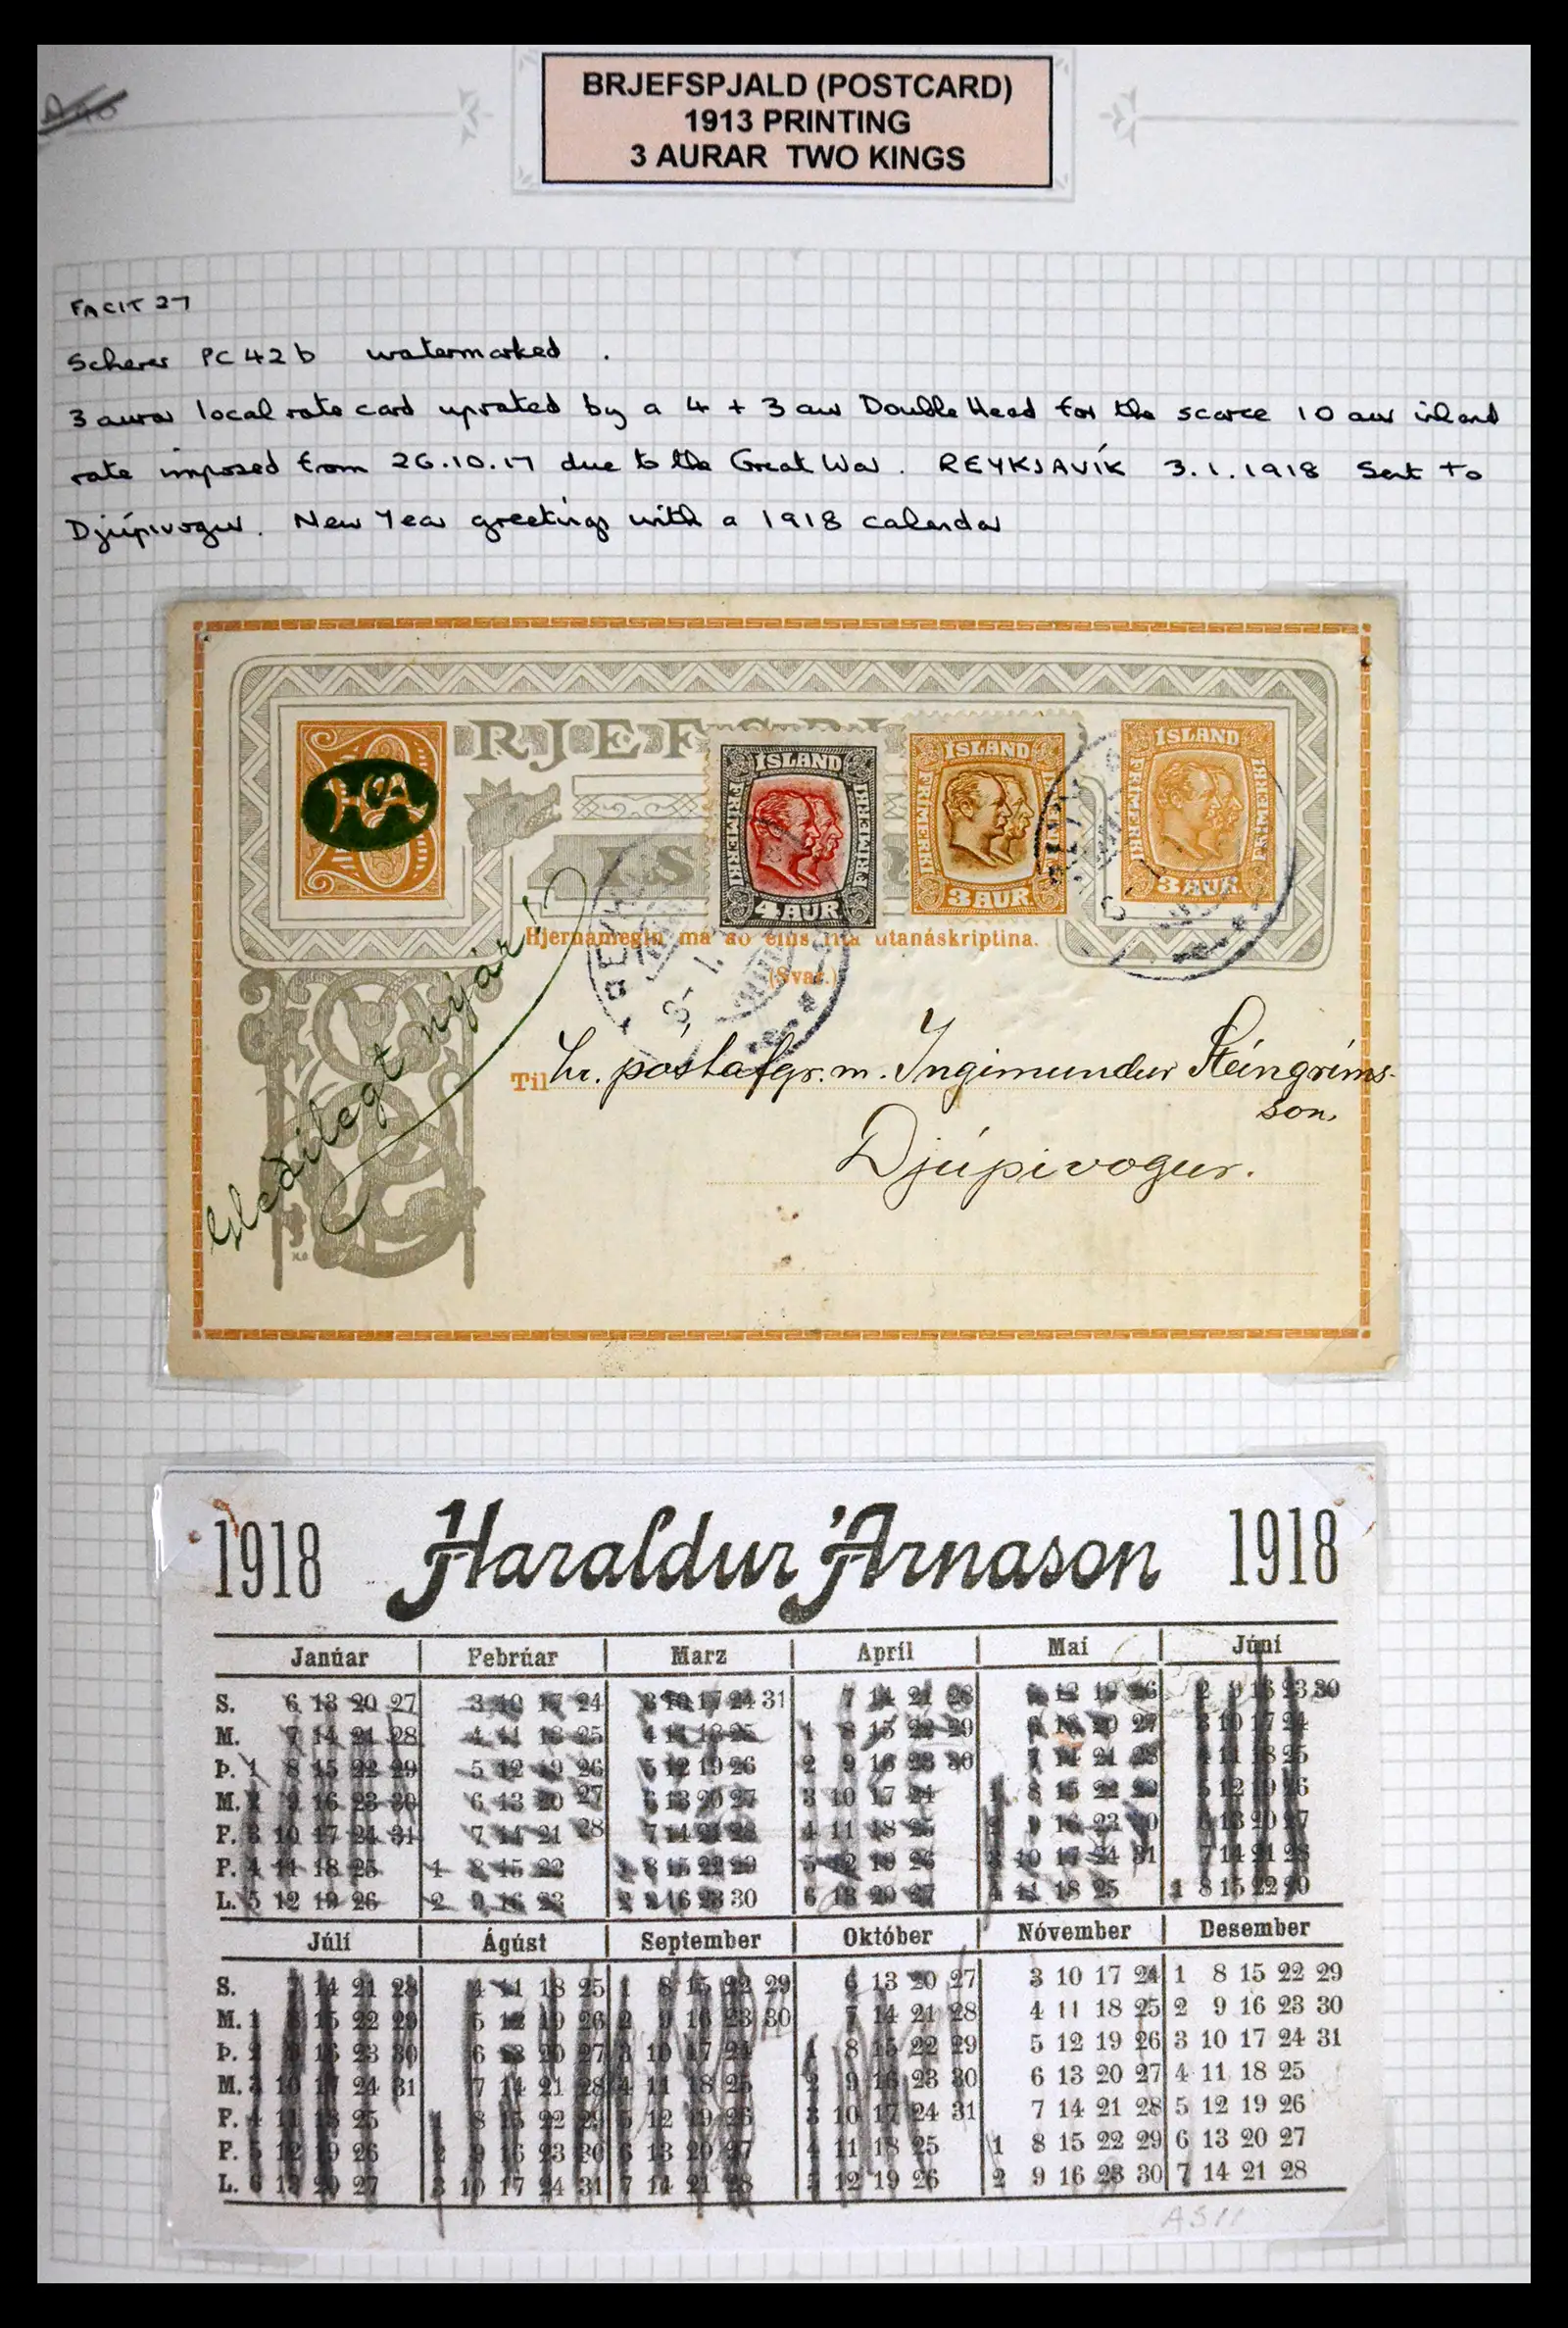 BRJEFSPJALD (POSTCARD)
1913 PRINTING
3 AURAR TWO KINGS
FACIT 27
Scherer PC 42b watermarked.
3 aurar local rate card uprated by a 4 + 3 aur Double Head for the scarce 10 aur inland
rate imposed from 26.10.17 due to the Great War. REYKJAVÍK 3.1.1918 Sent to
Djúpivogur. New Year greetings with a 1918 calendar
HA
ÍSLAND
FRIMERKI
4 AUR
ÍSLAND
FRIMERKI
3 AUR
ÍSLAND
FRIMERKI
3 AUR
Hjernamegin má að eins rita utanáskriptina.
(Svar.)
Til hr. póstafgr.m. Ingimundur Steingríms-
son,
Djúpivogur.
Gleðilegt nýár!
1918 Haraldur Árnason 1918
Janúar Febrúar Marz Apríl Mai Júní
S. 6 13 20 27 3 10 17 24 3 10 17 24 31 7 14 21 28 5 12 19 26 2 9 16 23 30
M. 7 14 21 28 4 11 18 25 4 11 18 25 1 8 15 22 29 6 13 20 27 3 10 17 24
Þ. 1 8 15 22 29 5 12 19 26 5 12 19 26 2 9 16 23 30 7 14 21 28 4 11 18 25
M. 2 9 16 23 30 6 13 20 27 6 13 20 27 3 10 17 24 1 8 15 22 29 5 12 19 26
F. 3 10 17 24 31 7 14 21 28 7 14 21 28 4 11 18 25 2 9 16 23 30 6 13 20 27
F. 4 11 18 25 1 8 15 22 1 8 15 22 29 5 12 19 26 3 10 17 24 31 7 14 21 28
L. 5 12 19 26 2 9 16 23 2 9 16 23 30 6 13 20 27 4 11 18 25 1 8 15 22 29
Júlí Ágúst September Október Nóvember Desember
S. 7 14 21 28 4 11 18 25 1 8 15 22 29 6 13 20 27 3 10 17 24 1 8 15 22 29
M. 1 8 15 22 29 5 12 19 26 2 9 16 23 30 7 14 21 28 4 11 18 25 2 9 16 23 30
Þ. 2 9 16 23 30 6 13 20 27 3 10 17 24 1 8 15 22 29 5 12 19 26 3 10 17 24 31
M. 3 10 17 24 31 7 14 21 28 4 11 18 25 2 9 16 23 30 6 13 20 27 4 11 18 25
F. 4 11 18 25 1 8 15 22 29 5 12 19 26 3 10 17 24 31 7 14 21 28 5 12 19 26
F. 5 12 19 26 2 9 16 23 30 6 13 20 27 4 11 18 25 1 8 15 22 29 6 13 20 27
L. 6 13 20 27 3 10 17 24 31 7 14 21 28 5 12 19 26 2 9 16 23 30 7 14 21 28